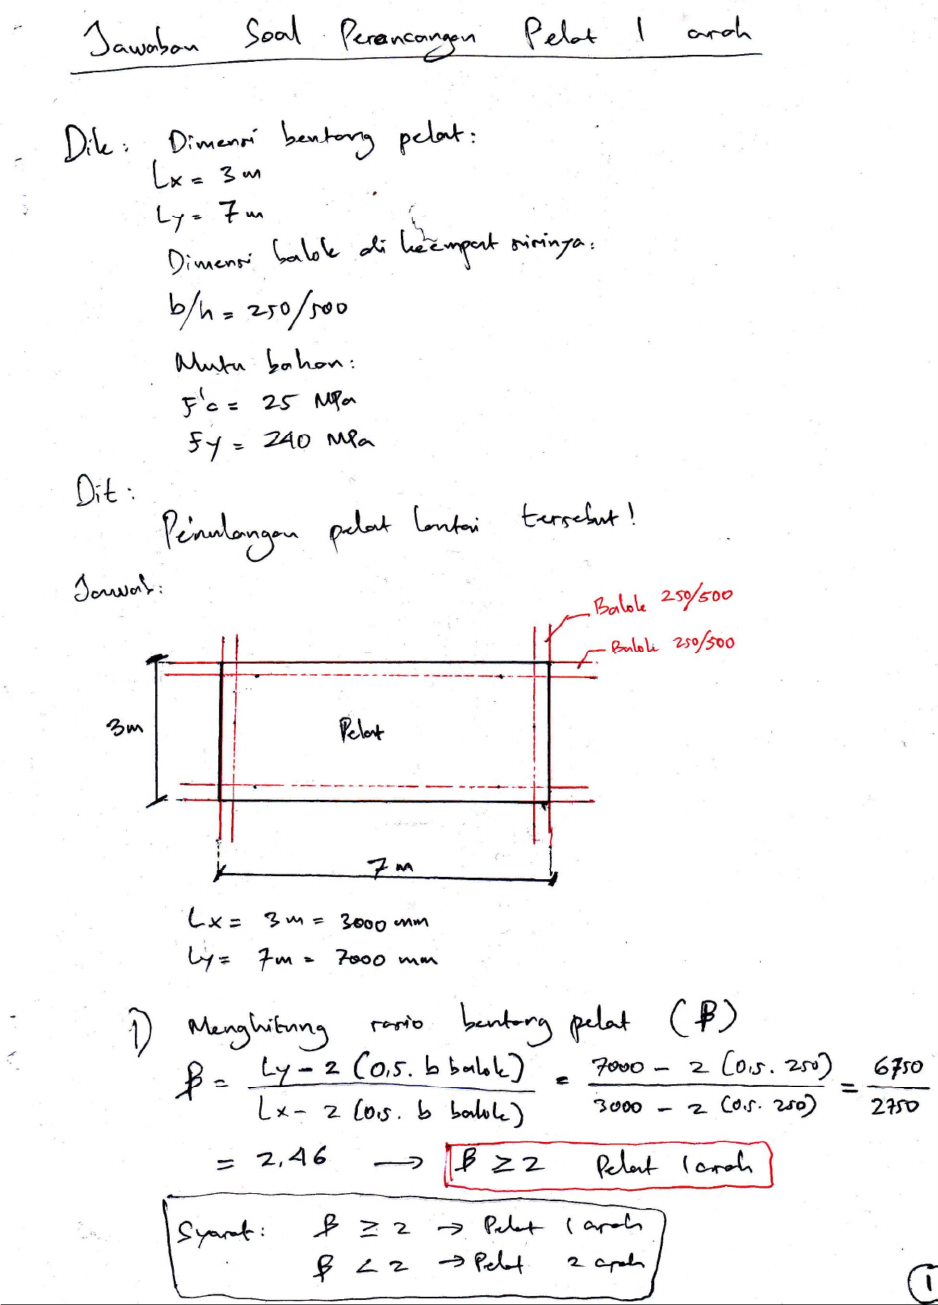 Jawaban Soal Perancangan Pelat 1 arah
Dik: Dimensi bentang pelat:
Lx = 3 m
Ly = 7 m
Dimensi balok di keempat sisinya:
b/h = 250/500
Mutu bahan:
F'c = 25 MPa
Fy = 240 MPa
Dit:
Penulangan pelat lantai tersebut!
Jawab:
Balok 250/500
Balok 250/500
3m
Pelat
7 m
Lx = 3 m = 3000 mm
Ly = 7m = 7000 mm
1) Menghitung rasio bentang pelat (β)
β = Ly - 2 (0,5. b balok) / Lx - 2 (0,5. b balok) = 7000 - 2 (0,5. 250) / 3000 - 2 (0,5. 250) = 6750 / 2750
= 2,46 → β ≥ 2 Pelat 1 arah
Syarat: β ≥ 2 → Pelat 1 arah
β < 2 → Pelat 2 arah
1